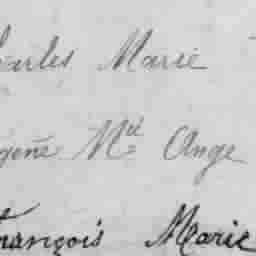 Charles Marie
Eugène Mie Ange
François Marie